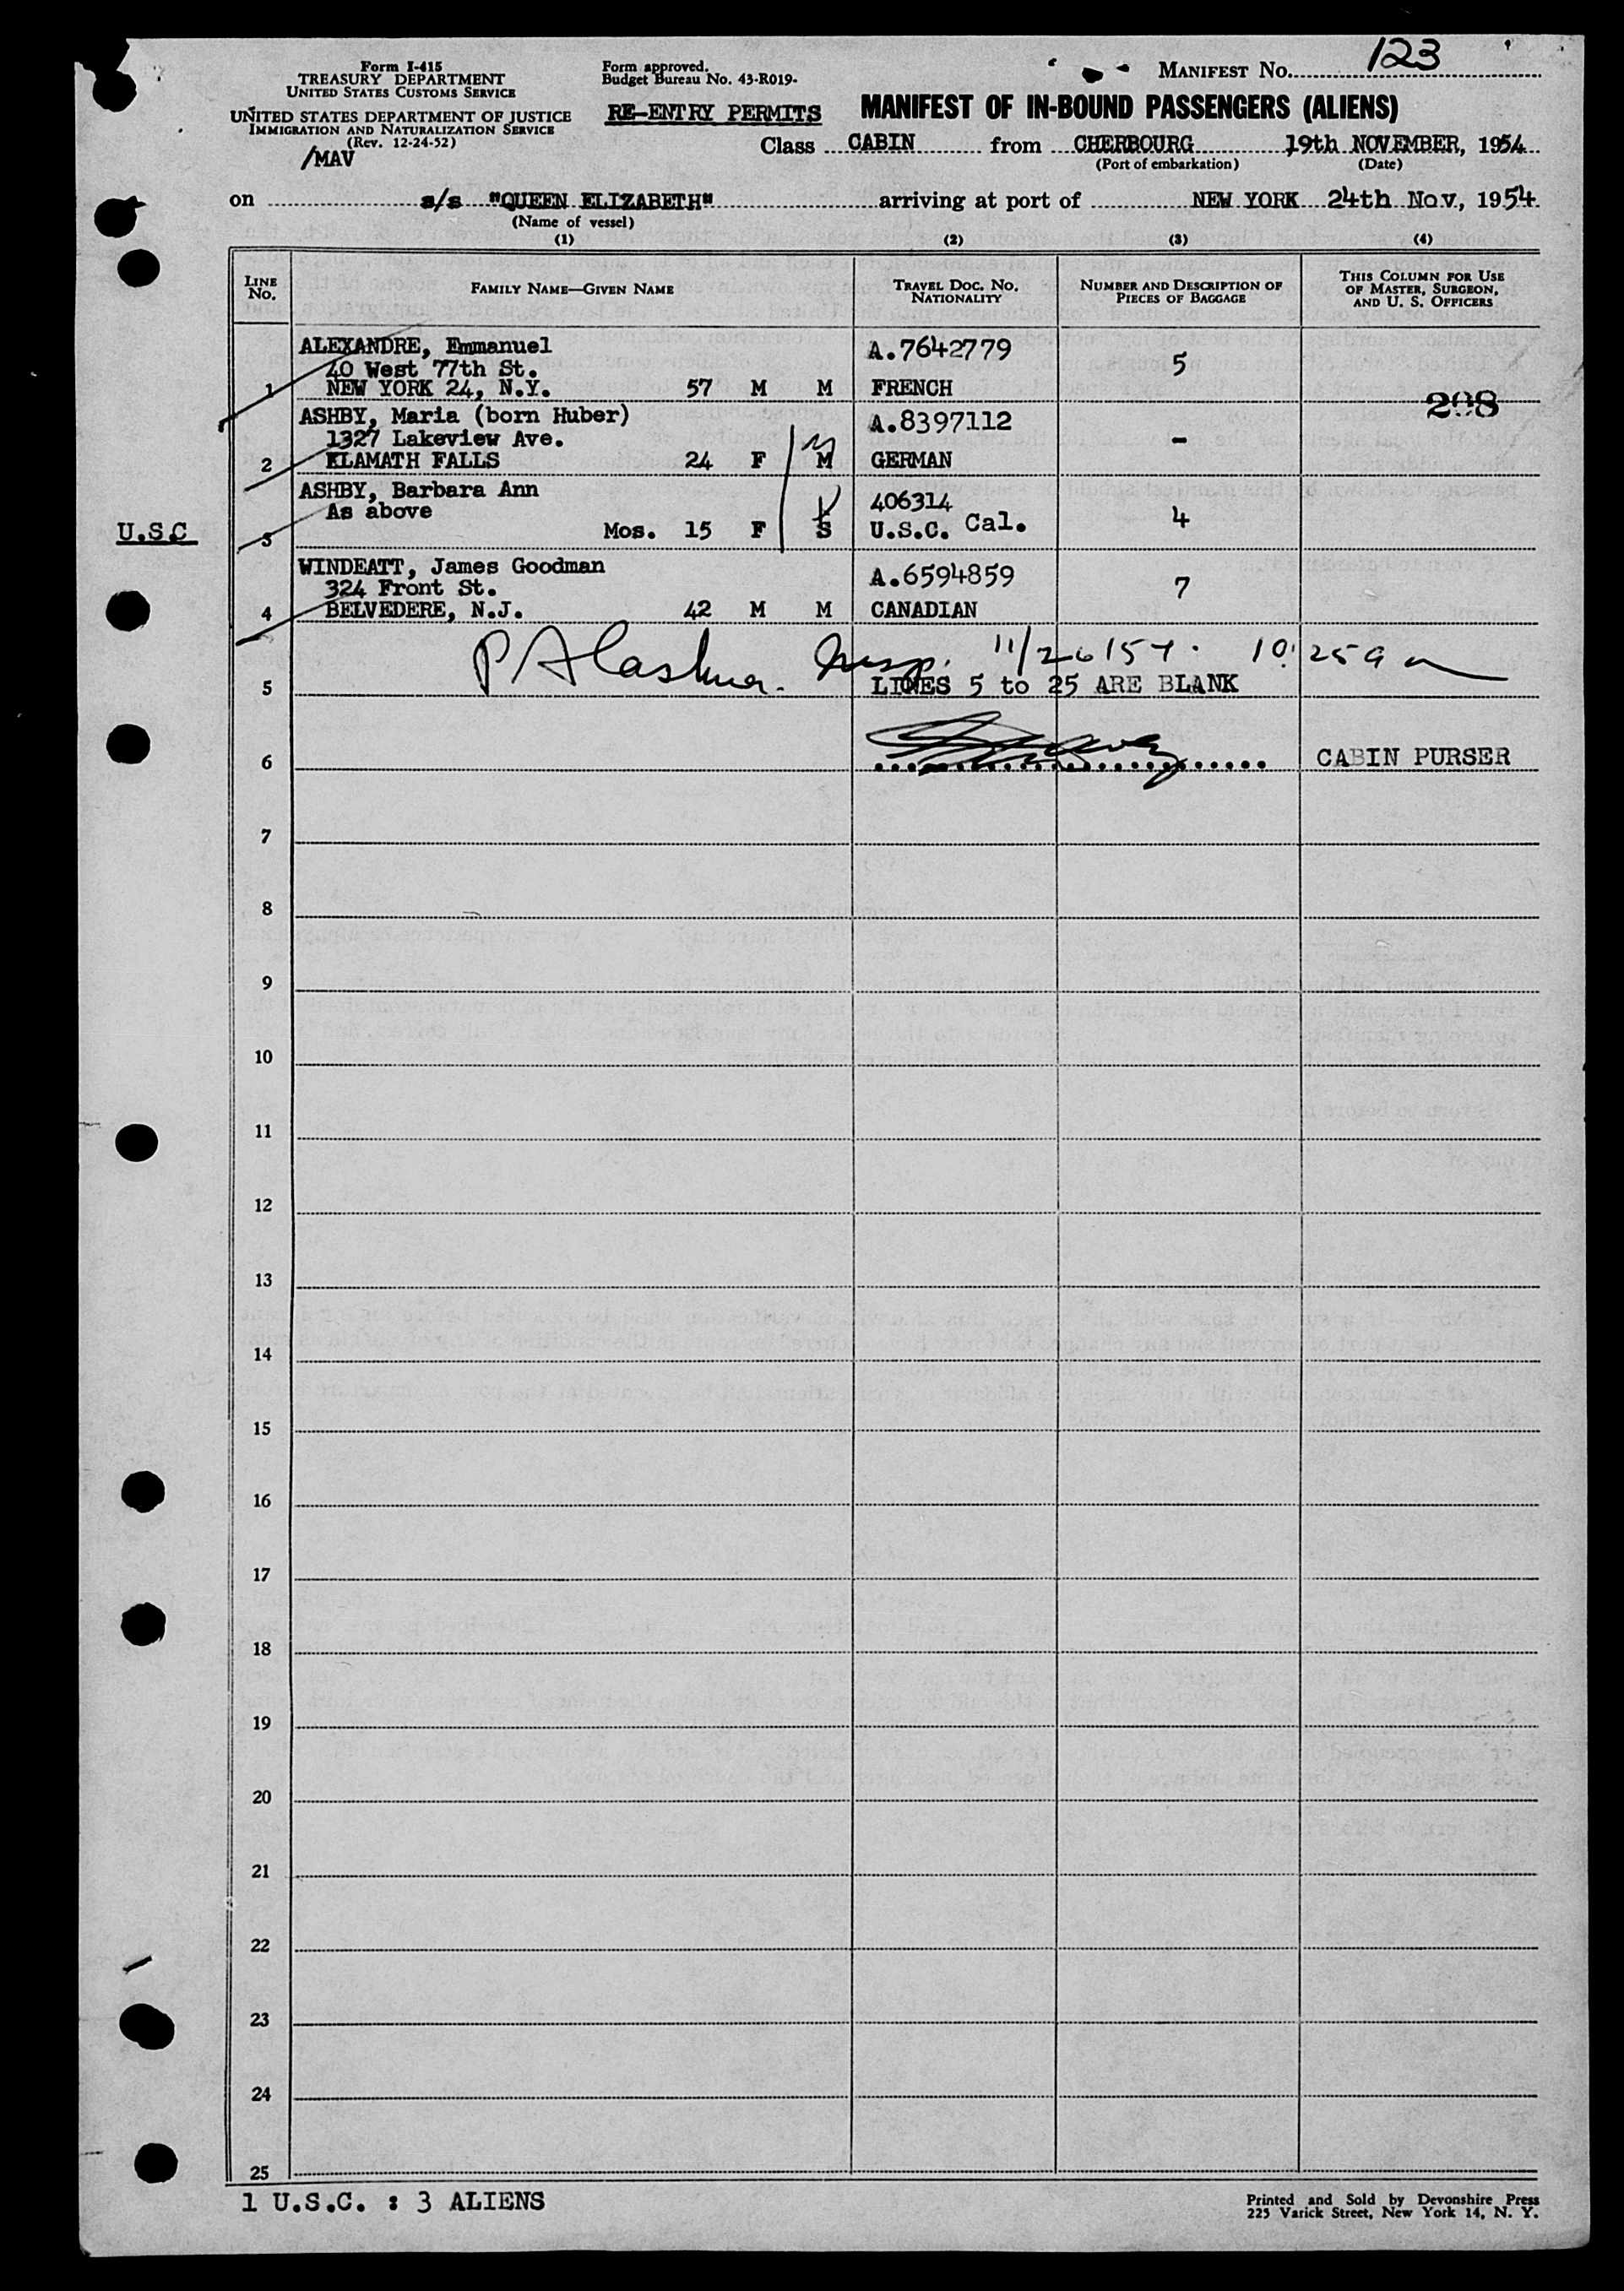 Form I-415
TREASURY DEPARTMENT
UNITED STATES CUSTOMS SERVICE
UNITED STATES DEPARTMENT OF JUSTICE
IMMIGRATION AND NATURALIZATION SERVICE
(Rev. 12-24-52)
/MAV
Form approved.
Budget Bureau No. 43-R019-
RE-ENTRY PERMITS
MANIFEST NO. 123
MANIFEST OF IN-BOUND PASSENGERS (ALIENS)
Class CABIN from CHERBOURG 19th NOVEMBER, 1954
(Port of embarkation) (Date)
on s/s "QUEEN ELIZABETH" arriving at port of NEW YORK 24th Nov, 1954
(Name of vessel)
(1) (2) (3) (4)
LINE NO. FAMILY NAME—GIVEN NAME TRAVEL DOC. NO. NATIONALITY NUMBER AND DESCRIPTION OF PIECES OF BAGGAGE THIS COLUMN FOR USE OF MASTER, SURGEON, AND U. S. OFFICERS
ALEXANDRE, Emmanuel A.7642779
40 West 77th St. 5
1 NEW YORK 24, N.Y. 57 M M FRENCH
208
ASHBY, Maria (born Huber) A.8397112
1327 Lakeview Ave. -
2 KLAMATH FALLS 24 F M GERMAN
ASHBY, Barbara Ann 406314
As above 4
U.S.C 3 Mos. 15 F S U.S.C. Cal.
WINDEATT, James Goodman A.6594859
324 Front St. 7
4 BELVEDERE, N.J. 42 M M CANADIAN
Insp. 11/26/54. 10:25 am
5 LINES 5 to 25 ARE BLANK
6 CABIN PURSER
7
8
9
10
11
12
13
14
15
16
17
18
19
20
21
22
23
24
25
1 U.S.C. : 3 ALIENS
Printed and Sold by Devonshire Press
225 Varick Street, New York 14, N. Y.